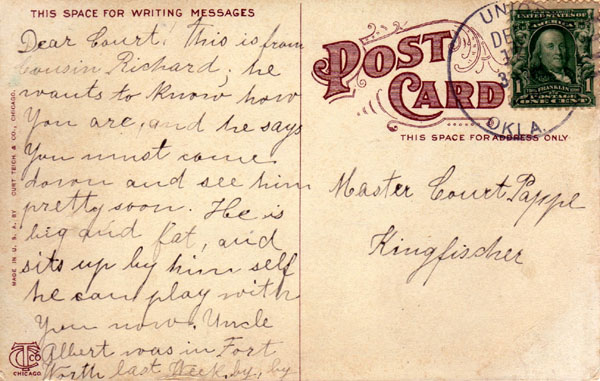 THIS SPACE FOR WRITING MESSAGES
Dear Court. This is from
Cousin Richard. he
wants to know how
You are, and he says
You must come
down and see him
pretty soon. He is
big and fat, and
sits up by him self
he can play with
You now. Uncle
Albert was in Fort
Worth last Week. by, by
MADE IN U. S. A. BY CURT TEICH & CO., CHICAGO.
CT CO
CHICAGO
POST
CARD
THIS SPACE FOR ADDRESS ONLY
UNION
DE
OKLA.
UNITED STATES OF AMERICA
FRANKLIN
POSTAGE
1
ONE CENT
Master Court Pappe
Kingfischer